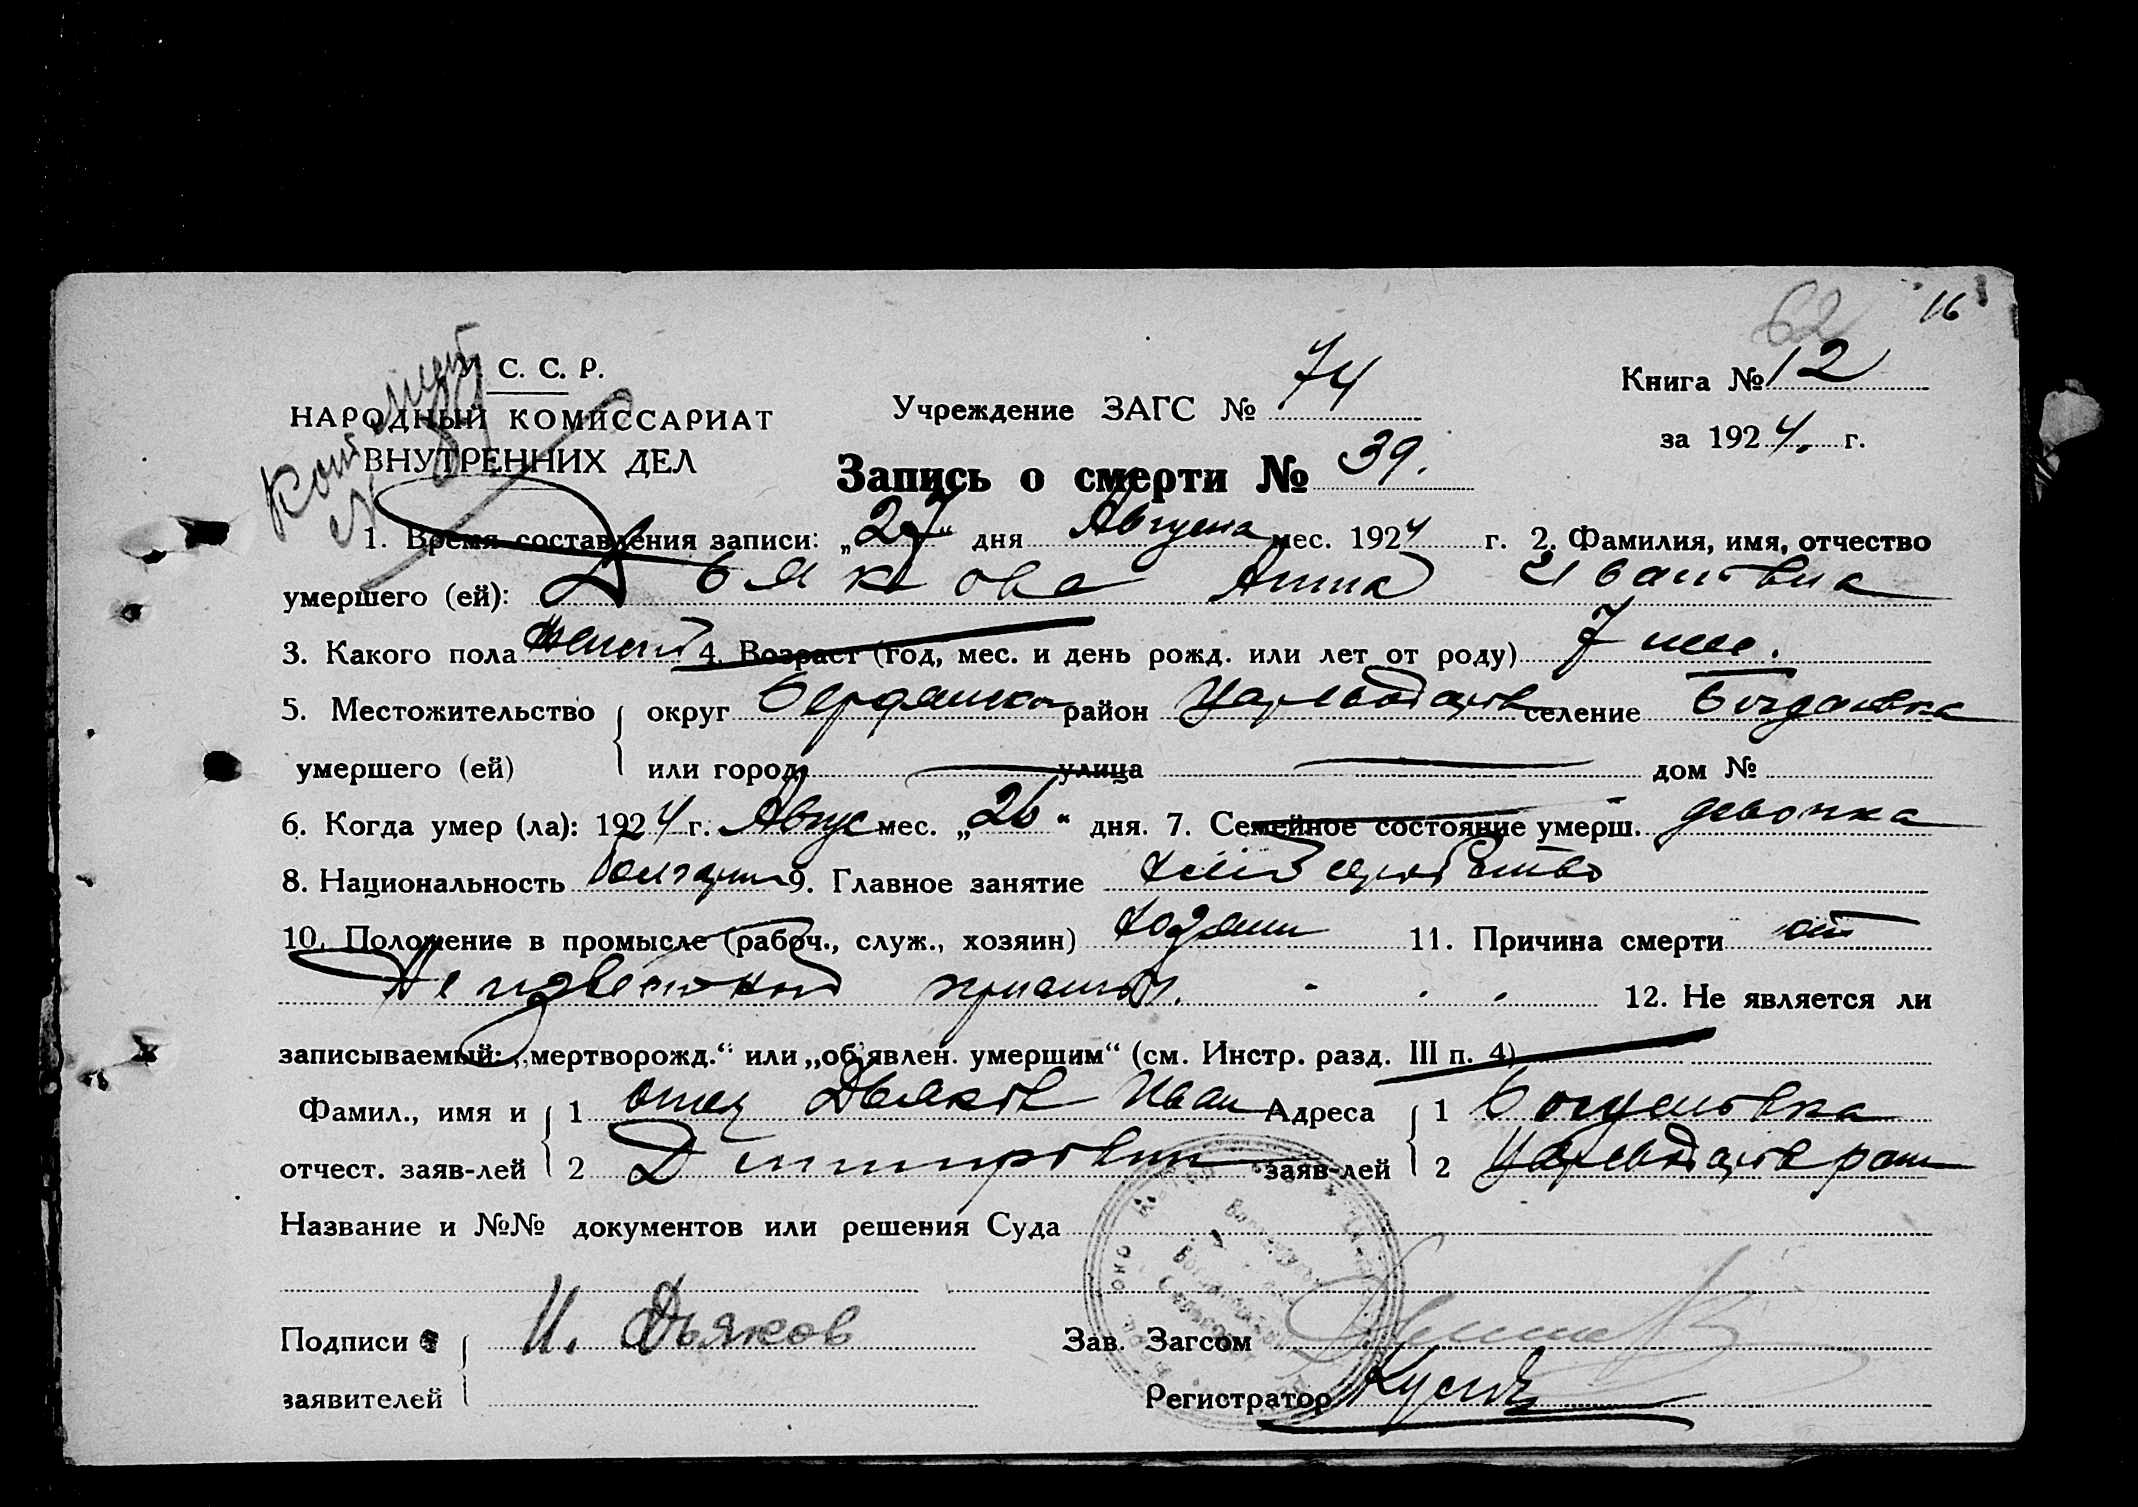 62 16
У. С. С. Р.
НАРОДНЫЙ КОМИССАРИАТ
ВНУТРЕННИХ ДЕЛ
Учреждение ЗАГС № 74
Книга № 12
за 1924. г.
Запись о смерти № 39.
1. Время составления записи: „27“ дня Августа мес. 1924 г. 2. Фамилия, имя, отчество
умершего (ей): Дьякова Анна Ивановна
3. Какого пола женский 4. Возраст (год, мес. и день рожд. или лет от роду) 7 мес.
5. Местожительство округ Бердянский район Цареводаров селение Богдановка
умершего (ей) или город улица дом №
6. Когда умер (ла): 1924 г. Август мес. „26“ дня. 7. Семейное состояние умерш. девочка
8. Национальность болгарин 9. Главное занятие хлебопашество
10. Положение в промысле (рабоч., служ., хозяин) хозяин 11. Причина смерти от
Неизвестной причины. 12. Не является ли
записываемый: „мертворожд.“ или „об'явлен. умершим“ (см. Инстр. разд. III п. 4)
Фамил., имя и 1 отец Дьяков Иван Адреса 1 Богдановка
отчест. заяв-лей 2 Дмитрович заяв-лей 2
Название и №№ документов или решения Суда
Подписи И. Дьяков Зав. Загсом
заявителей Регистратор